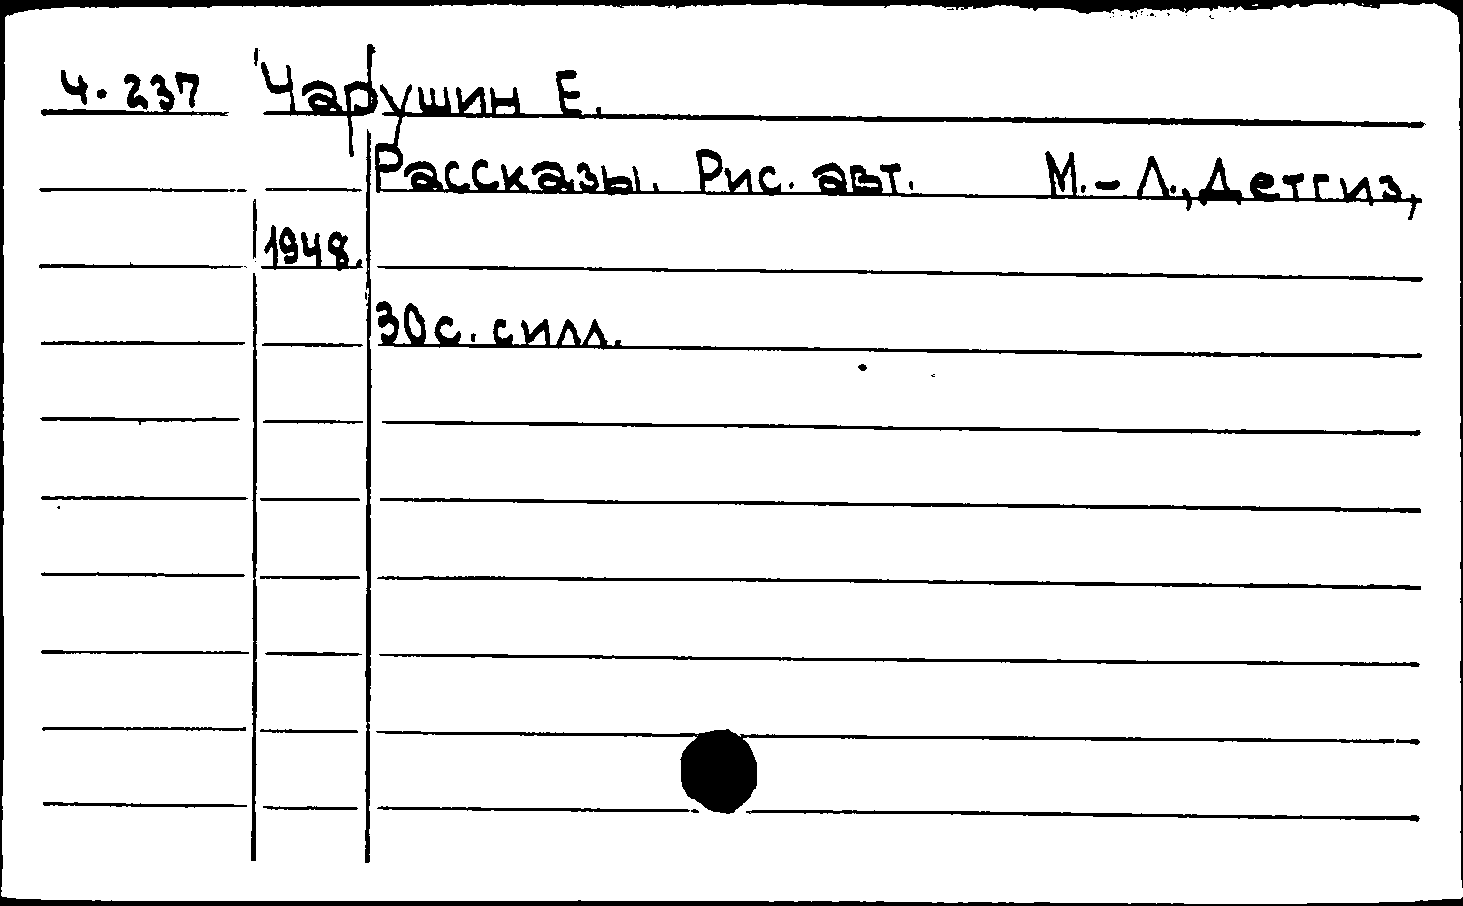 Ч. 237 Чарушин Е.
Рассказы. Рис. авт. М.-Л., Детгиз,
1948.
30с. силл.